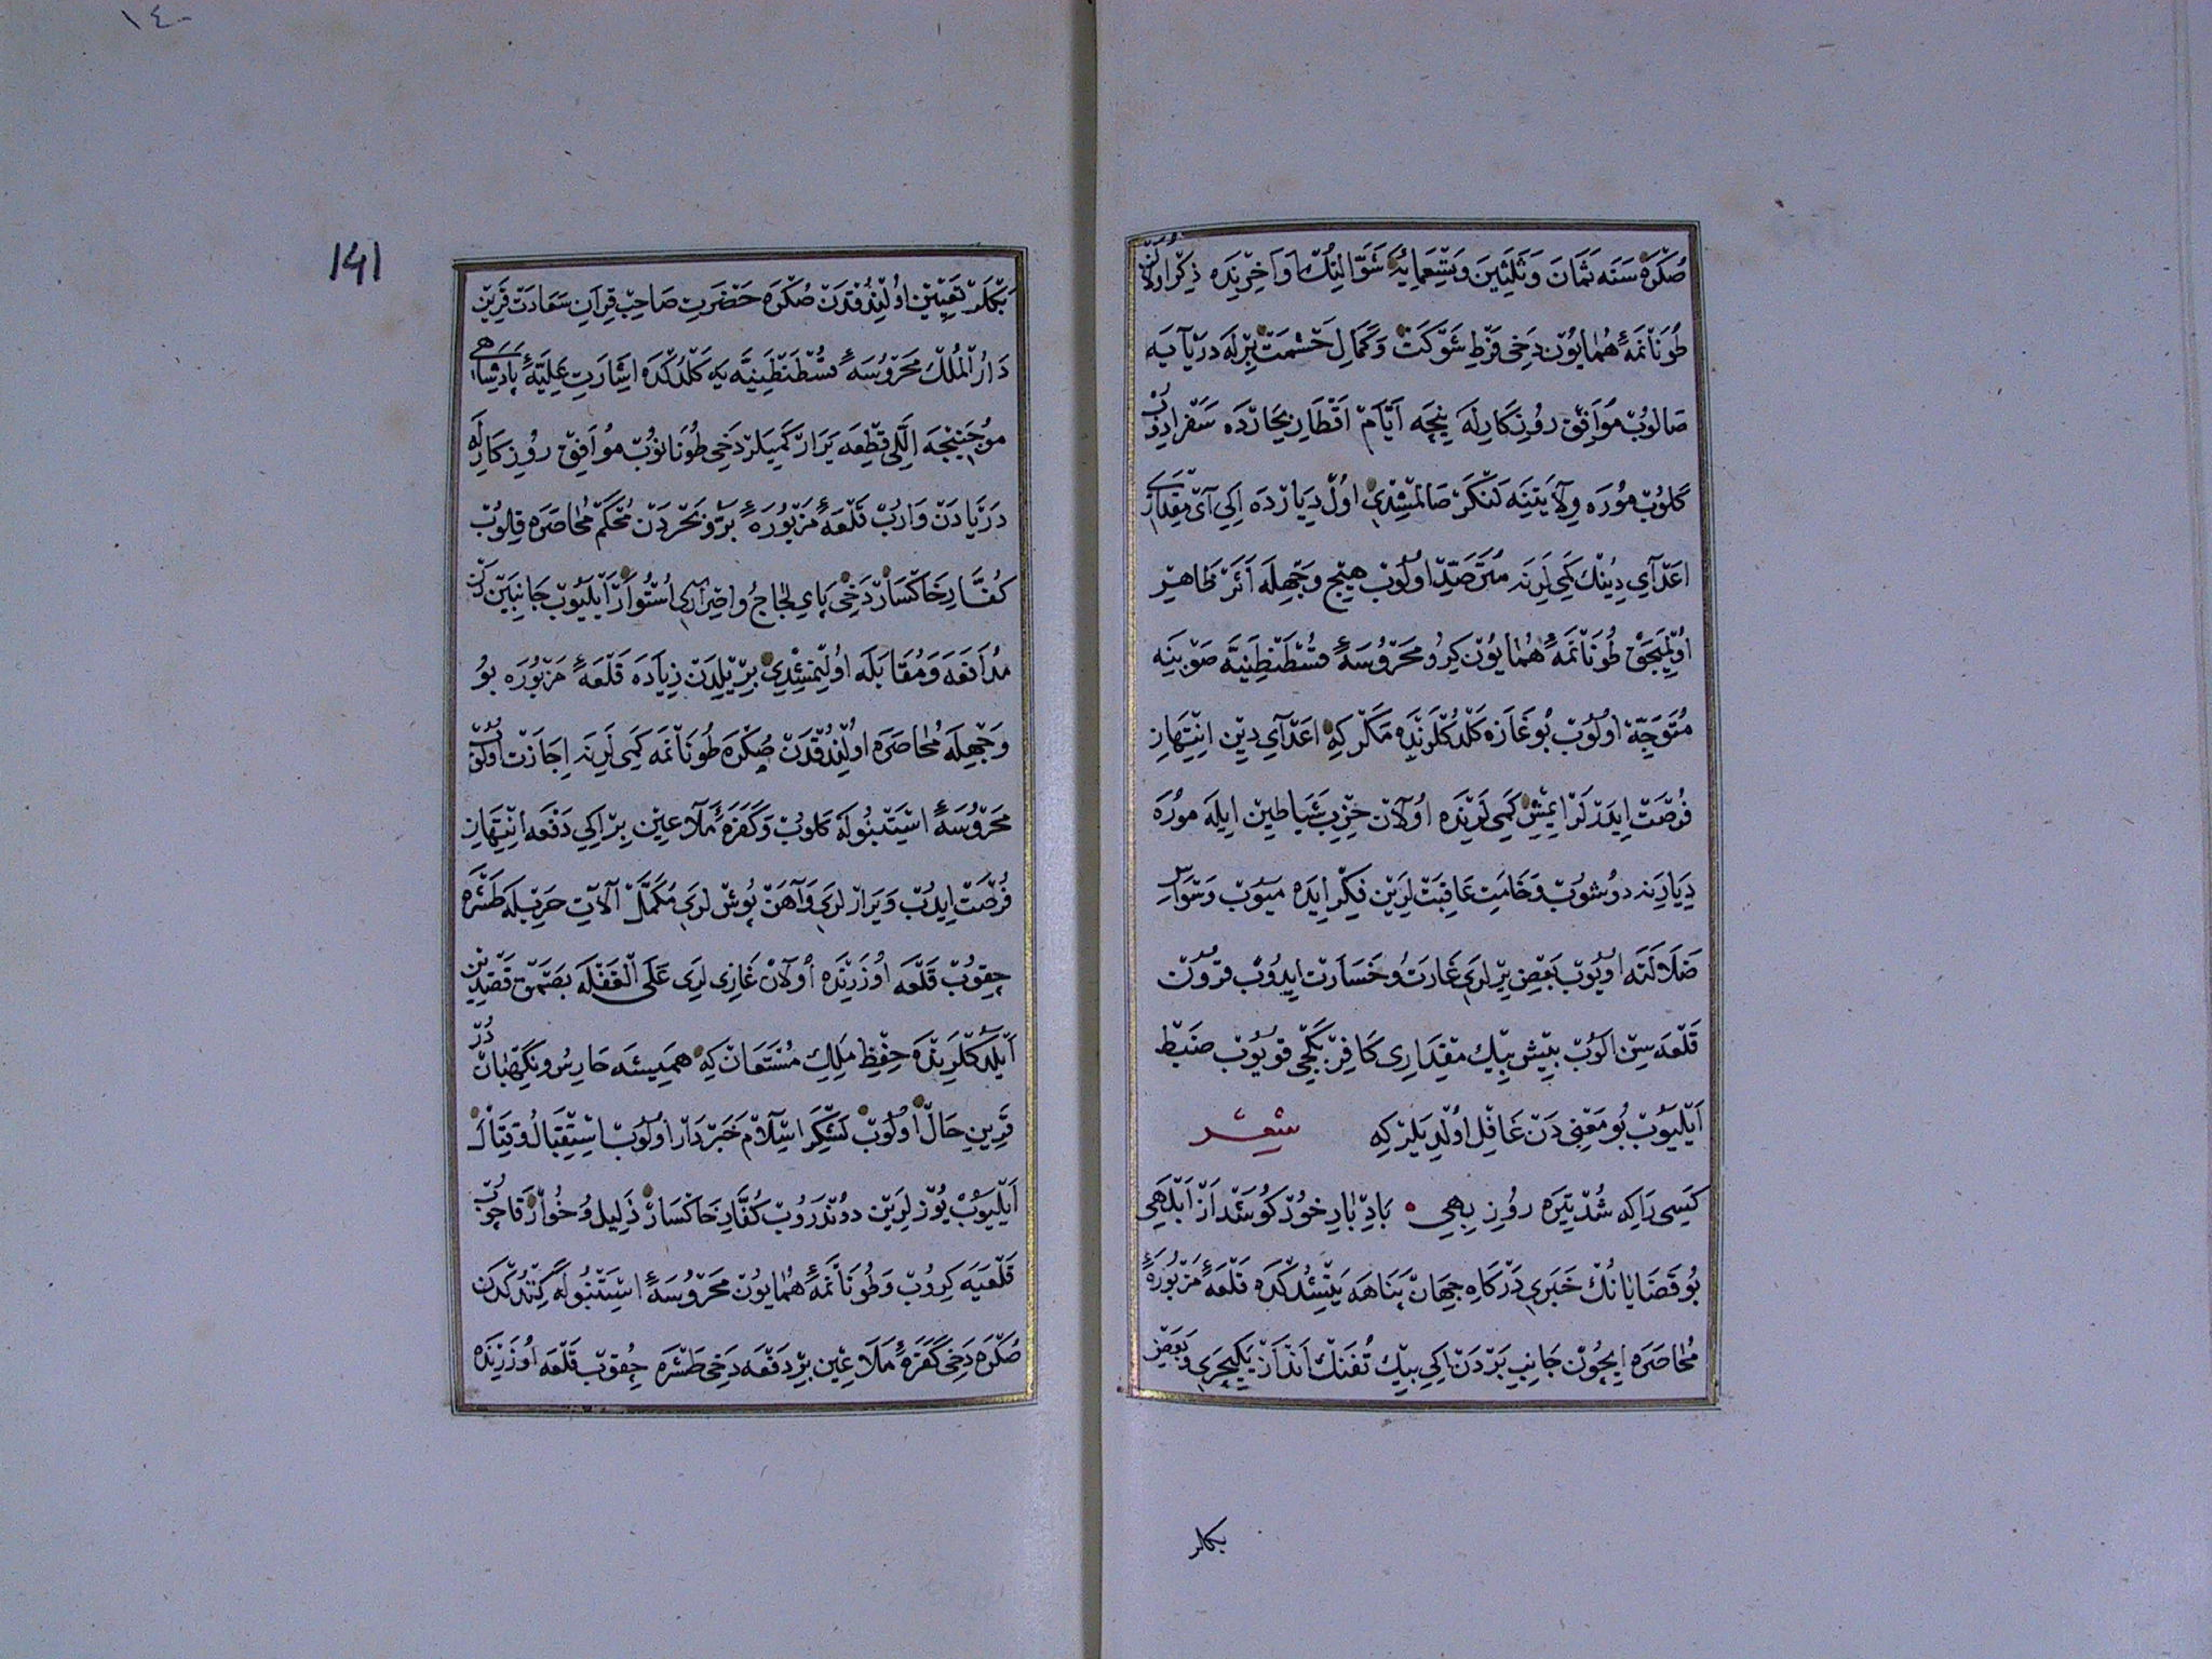 صُكْرَه سَنَه ثَمَانَ وَثَلٰثِينَ وَتِسْعَمِائَه شَوَّالِنُكْ اَوَاخِرِنْدَه ذِكْر اُولَانْ
طُونَانْمَهٔ هُمَايُونْ دَخِى فَرْطِ شَوْكَتْ وَكَمَالِ حَشْمَتْ بِرْلَه دَرْيَايَه
صَالُوبْ مُوَافِقْ رُوزِكَارِلَه نِيچَه اَيَّامْ اَقْطَارِ بِحَارْدَه سَفَر اِدُوبْ
كَلُوبْ مُورَه وِلَايَتِينَه لَنْكَرْ صَالْمِشْدِى اُولْ دِيَارْدَه اِكِى آىْ مِقْدَارِى
اَعْدَآىِ دِينُكْ كَمِى لَرِنَه مُتَرَصِّدْ اُولُوبْ هِيچْ وَجْهِلَه اَثَرْ ظَاهِرْ
اُولْمَيِجَقْ طُونَانْمَهٔ هُمَايُونْ كِيرُو مَحْرُوسَهٔ قُسْطَنْطِنِيَّه صَوْبِنَه
مُتَوَجِّه اُولُوبْ بُوغَازَه كَلْدُكْلَرِنْدَه مَكَرْ كِه اَعْدَآىِ دِينْ اِنْتِهَازِ
فُرْصَتْ اِيدَرْلَرْ اِيمِشْ كَمِى لَرِنْدَه اُولَانْ حِزْبِ شَيَاطِينْ اِيلَه مُورَه
دِيَارِنَه دُوشُوبْ وَخَامَتِ عَاقِبَتْ لَرِينْ فِكْر اِيدَه مَيُوبْ وَسْوَاسِ
ضَلَالَتَه اُويُوبْ بَعْضِ يِرْلَرِى غَارَتْ وُ خَسَارَتْ اِيدُوبْ قُرُونْ
قَلْعَه سِنْ اَلُوبْ بِشْ بِيكْ مِقْدَارِى كَافِرْ بَكْجِى قُويُوبْ ضَبْط
اَيْلَيُوبْ بُو مَعْنِى دَنْ غَافِلْ اُولْدِيلَرْ كِه شِعْر
كَسِى رَا كِه شُدْ تِيرَه رُوزِ بِهِى ۰ بَادْبَارِ خُودْ كُوشَدْ اَزْ اَبْلَهِى
بُو قَضَايَانُكْ خَبَرِى دَرْكَاهِ جِهَانْ پَنَاهَه يَتِشْدُكْدَه قَلْعَهٔ مَزْبُورَهٔ
مُحَاصَرَه اِيچُونْ جَانِبِ بَرْدَنْ اِكِى بِيكْ تُفَنْكْ اَنْدَازْ يَكِيچَرِى وَبَعْضِ
بكلر
١٤٠
141
بَكْلَرْ تَعْيِينْ اُولِنْدُقْدَنْ صُكْرَه حَضْرَتِ صَاحِبْ قِرَانِ سَعَادَتْ قَرِينْ
دَارُ الْمُلْكْ مَحْرُوسَهٔ قُسْطَنْطِنِيَّه يَه كَلْدُكْدَه اِشَارَتِ عَلِيَّهٔ پَادِشَاهِى
مُوجَبِنْجَه اِللِّى قِطْعَه يَرَارْ كَمِيلَرْ دَخِى طُونَانُوبْ مُوَافِقْ رُوزِكَارِلَه
دَرْيَادَنْ وَارُبْ قَلْعَهٔ مَزْبُورَهٔ بَرّ وُ بَحْرْدَنْ مُحْكَمْ مُحَاصَرَه قِلُوبْ
كُفَّارِ خَاكْسَارْ دَخِى پَاىِ لِجَاجْ وَاِصْرَارِى اُسْتُوَارْ اَيْلَيُوبْ جَانِبَيْنْ دَنْ
مُدَافَعَه وَ مُقَابَلَه اُولِنْمِشْدِى بِرْ يِيلْدَنْ زِيَادَه قَلْعَهٔ مَزْبُورَه بُو
وَجْهِلَه مُحَاصَرَه اُولِنْدُقْدَنْ صُكْرَه طُونَانْمَه كَمِى لَرِنَه اِجَازَتْ اُولُوبْ
مَحْرُوسَهٔ اِسْتَنْبُولَه كَلُوبْ وَ كَفَرَهٔ مَلَاعِينْ بِرْ اِكِى دَفْعَه اِنْتِهَازِ
فُرْصَتْ اِيدُبْ وَ يَرَارْلَرِى وَ آهَنْ پُوشْ لَرِى مُكَمَّلْ آلَاتِ حَرْبِلَه طَشْرَه
چِقُوبْ قَلْعَه اُوزَرِنْدَه اُولَانْ غَازِى لَرِى عَلَى الْغَفْلَه بَصْمَقْ قَصْدِينْ
اَيْلَدُكْلَرِنْدَه حِفْظِ مَلِكِ مُسْتَعَانْ كِه هَمِيشَه حَارِسْ وُ نِكَهْبَانْدُرْ
قَرِينِ حَالْ اُولُوبْ لَشْكَرِ اِسْلَامْ خَبَرْدَارْ اُولُوبْ اِسْتِقْبَالْ وُ قِتَالْ
اَيْلَيُوبْ يُوزْلَرِينْ دُونْدُرُوبْ كُفَّارِ خَاكْسَارْ ذَلِيلْ وُ خُوارْ قَاچُوبْ
قَلْعَيَه كِرُوبْ وَ طُونَانْمَهٔ هُمَايُونْ مَحْرُوسَهٔ اِسْتَنْبُولَه كِتْدُكْدَنْ
صُكْرَه دَخِى كَفَرَهٔ مَلَاعِينْ بِرْ دَفْعَه دَخِى طَشْرَه چِقُوبْ قَلْعَه اُوزَرِنْدَه